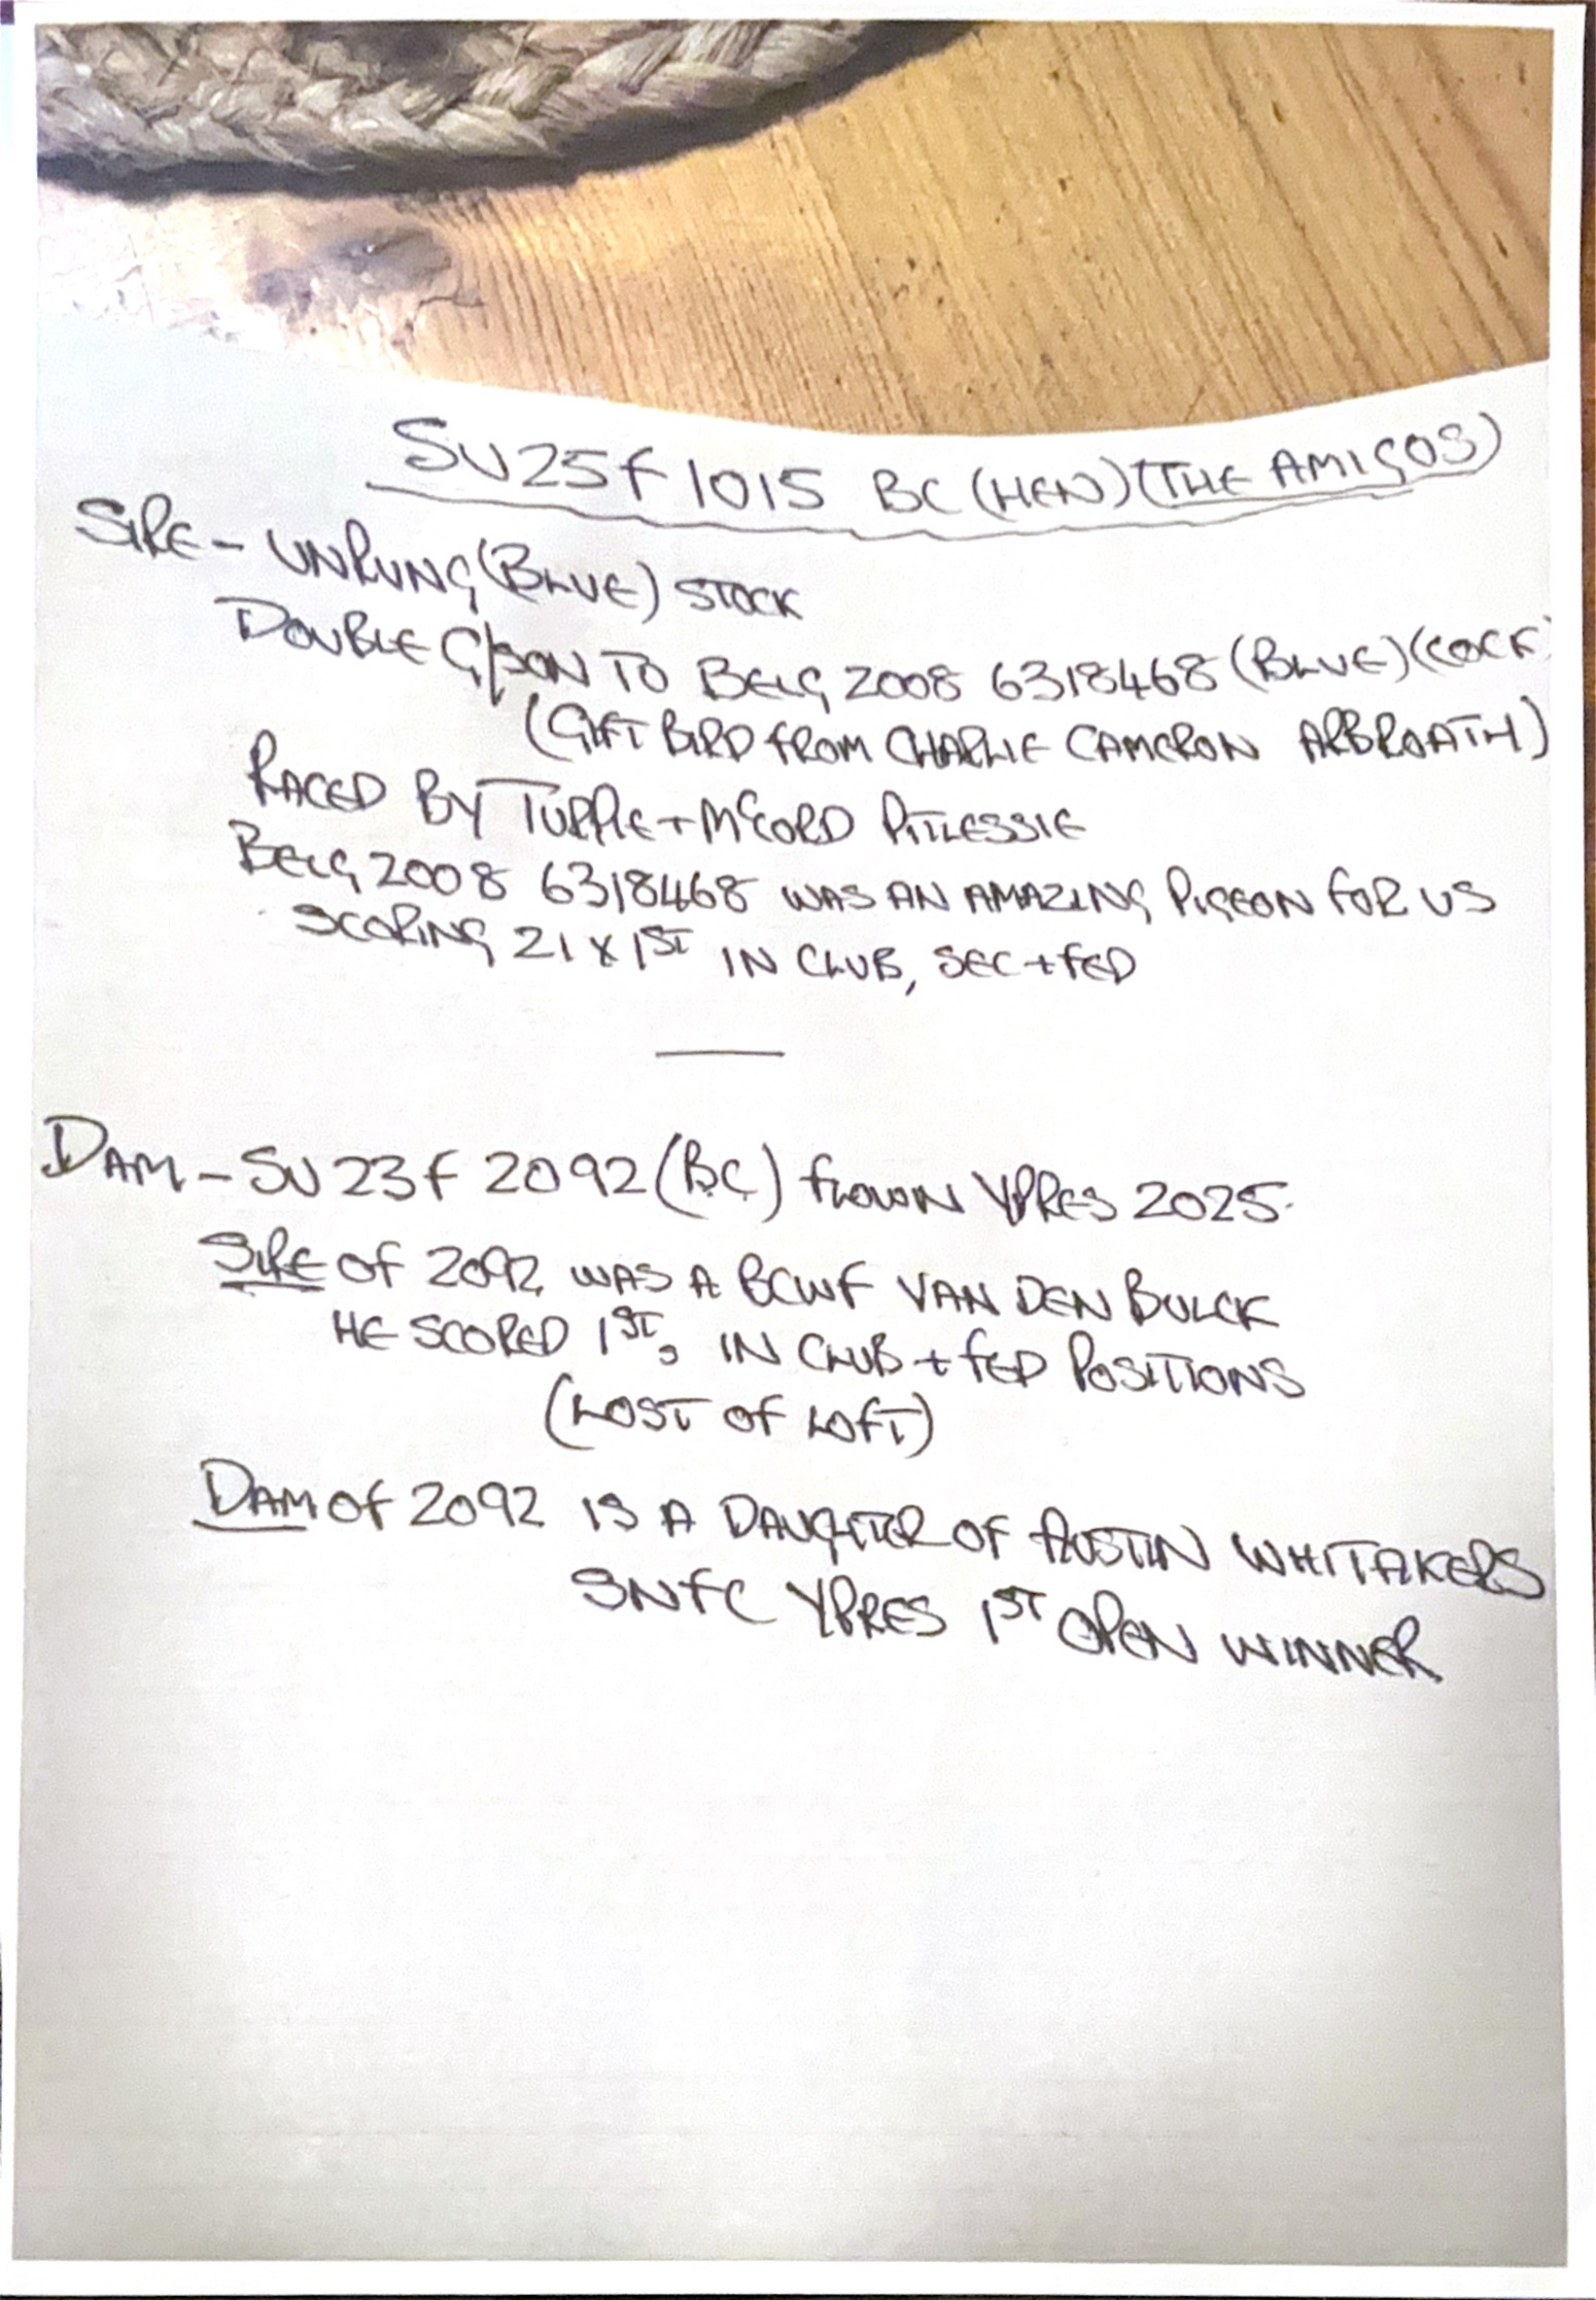 SU25F1015 BC (HEN) (THE AMIGOS)
SIRE - UNRUNG (BLUE) STOCK
DOUBLE G/SON TO BELG 2008 6318468 (BLUE) (COCK)
(GIFT BIRD FROM CHARLIE CAMERON ARBROATH)
RACED BY TURPIE + McCORD PITLESSIE
BELG 2008 6318468 WAS AN AMAZING PIGEON FOR US
SCORING 21 X 1ST IN CLUB, SEC + FED
DAM - SU23F 2092 (BC) FLOWN YPRES 2025.
SIRE OF 2092 WAS A BCWF VAN DEN BULCK
HE SCORED 1STs IN CLUB + FED POSITIONS
(LOST OF LOFT)
DAM OF 2092 IS A DAUGHTER OF AUSTIN WHITAKERS
SNFC YPRES 1ST OPEN WINNER